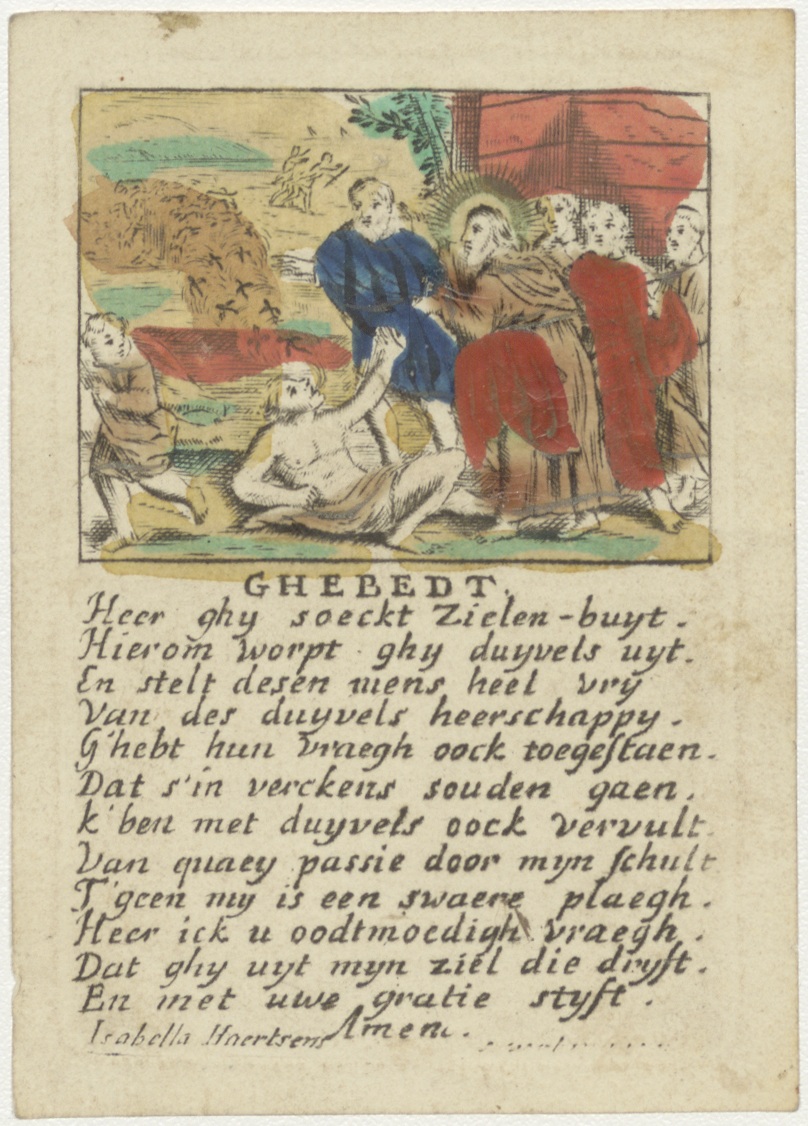 GHEBEDT.
Heer ghy soeckt Zielen-buyt.
Hierom worpt ghy duyvels uyt.
En stelt desen mens heel vry
Van des duyvels heerschappy.
G'hebt hun vraegh oock toegestaen.
Dat s'in verckens souden gaen.
k'ben met duyvels oock vervult.
Van quaey passie door myn schult
T'geen my is een swaere plaegh.
Heer ick u oodtmoedigh vraegh.
Dat ghy uyt myn ziel die dryft.
En met uwe gratie styft.
Amen.
Isabella Haertsens